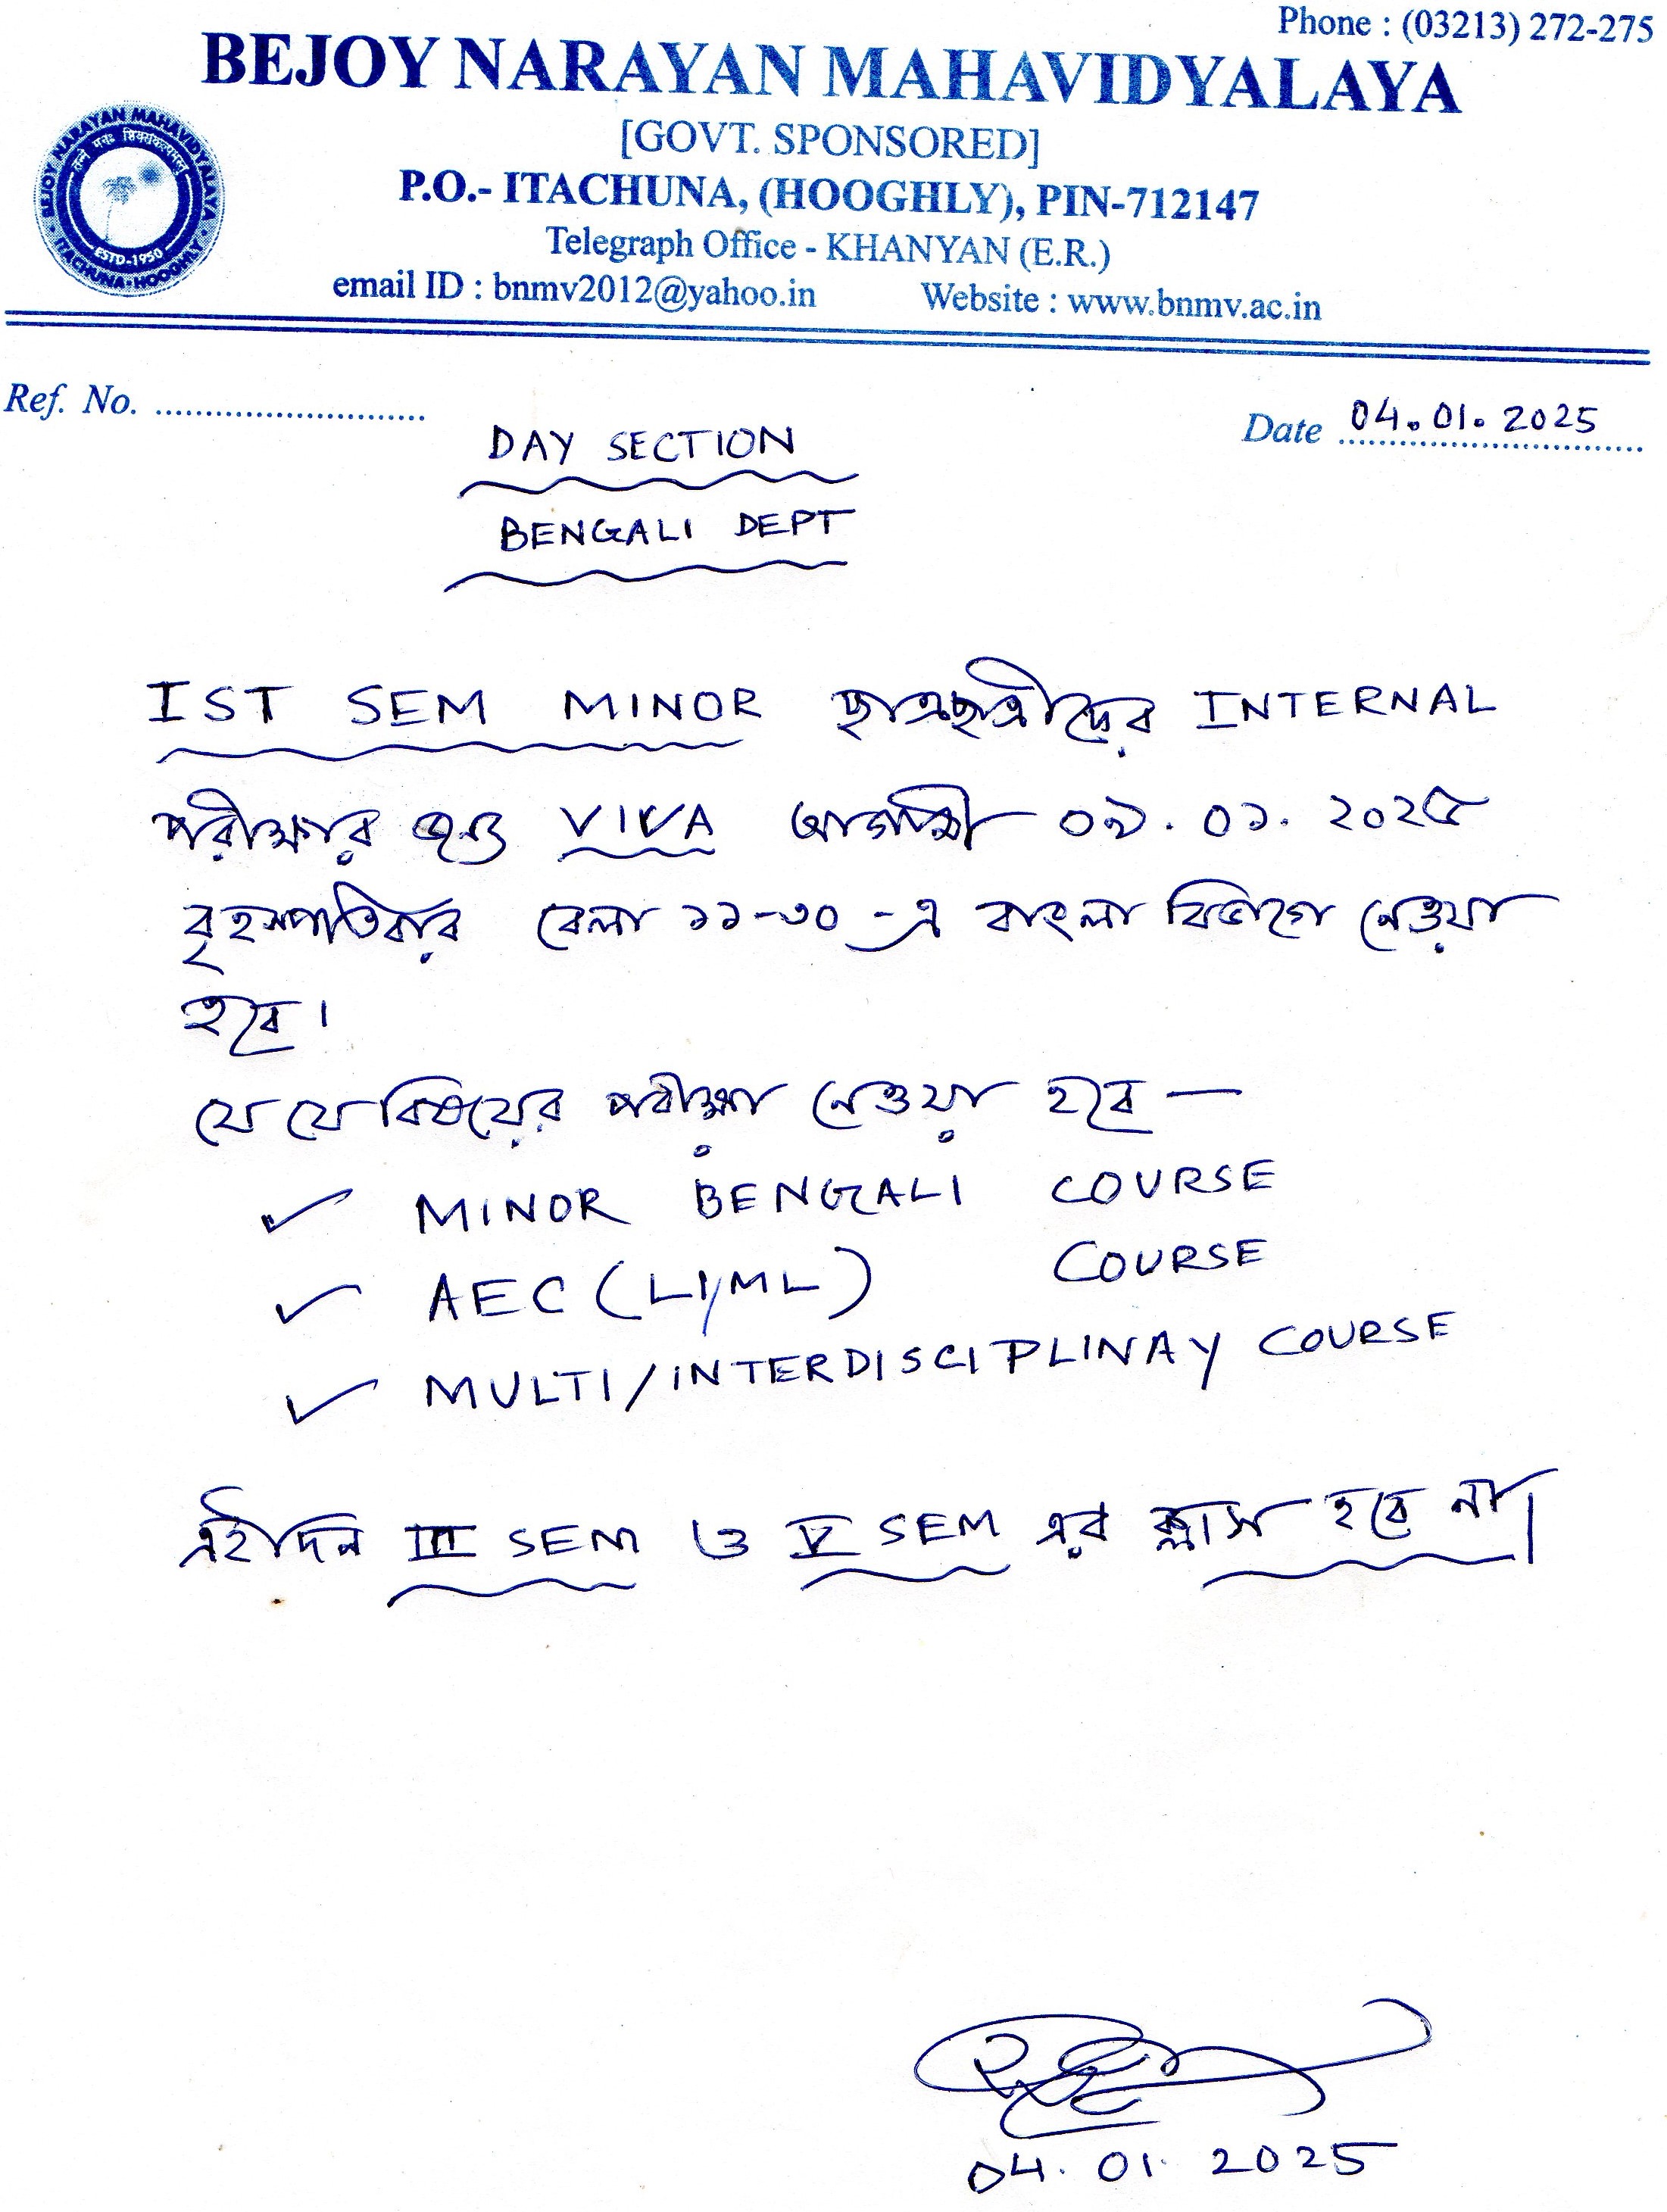 Phone : (03213) 272-275
BEJOY NARAYAN MAHAVIDYALAYA
[GOVT. SPONSORED]
P.O.- ITACHUNA, (HOOGHLY), PIN-712147
Telegraph Office - KHANYAN (E.R.)
email ID : bnmv2012@yahoo.in Website : www.bnmv.ac.in
BEJOY NARAYAN MAHAVIDYALAYA
ITACHUNA-HOOGHLY
ESTD-1950
Ref. No. ............................
Date 04.01.2025
DAY SECTION
BENGALI DEPT
IST SEM MINOR ছাত্রছাত্রীদের INTERNAL
পরীক্ষার জন্য VIVA আগামী ০৯.০১.২০২৫
বৃহস্পতিবার বেলা ১১-৩০-এ বাংলা বিভাগে নেওয়া
হবে।
যে যে বিষয়ের পরীক্ষা নেওয়া হবে —
✓ MINOR BENGALI COURSE
✓ AEC (L1/ML) COURSE
✓ MULTI/INTERDISCIPLINAY COURSE
এইদিন III SEM ও V SEM এর ক্লাস হবে না।
04.01.2025